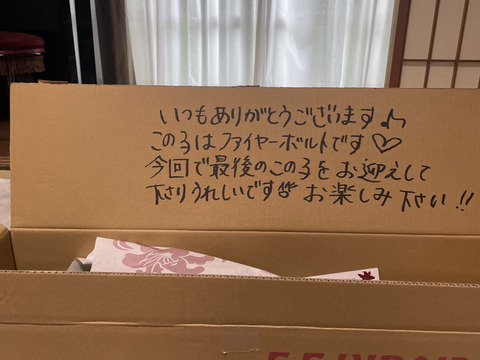 いつもありがとうございます♪
この子はファイヤーボルトです♡
今回で最後のこの子をお迎えして
下さりうれしいです💕 お楽しみ下さい!!